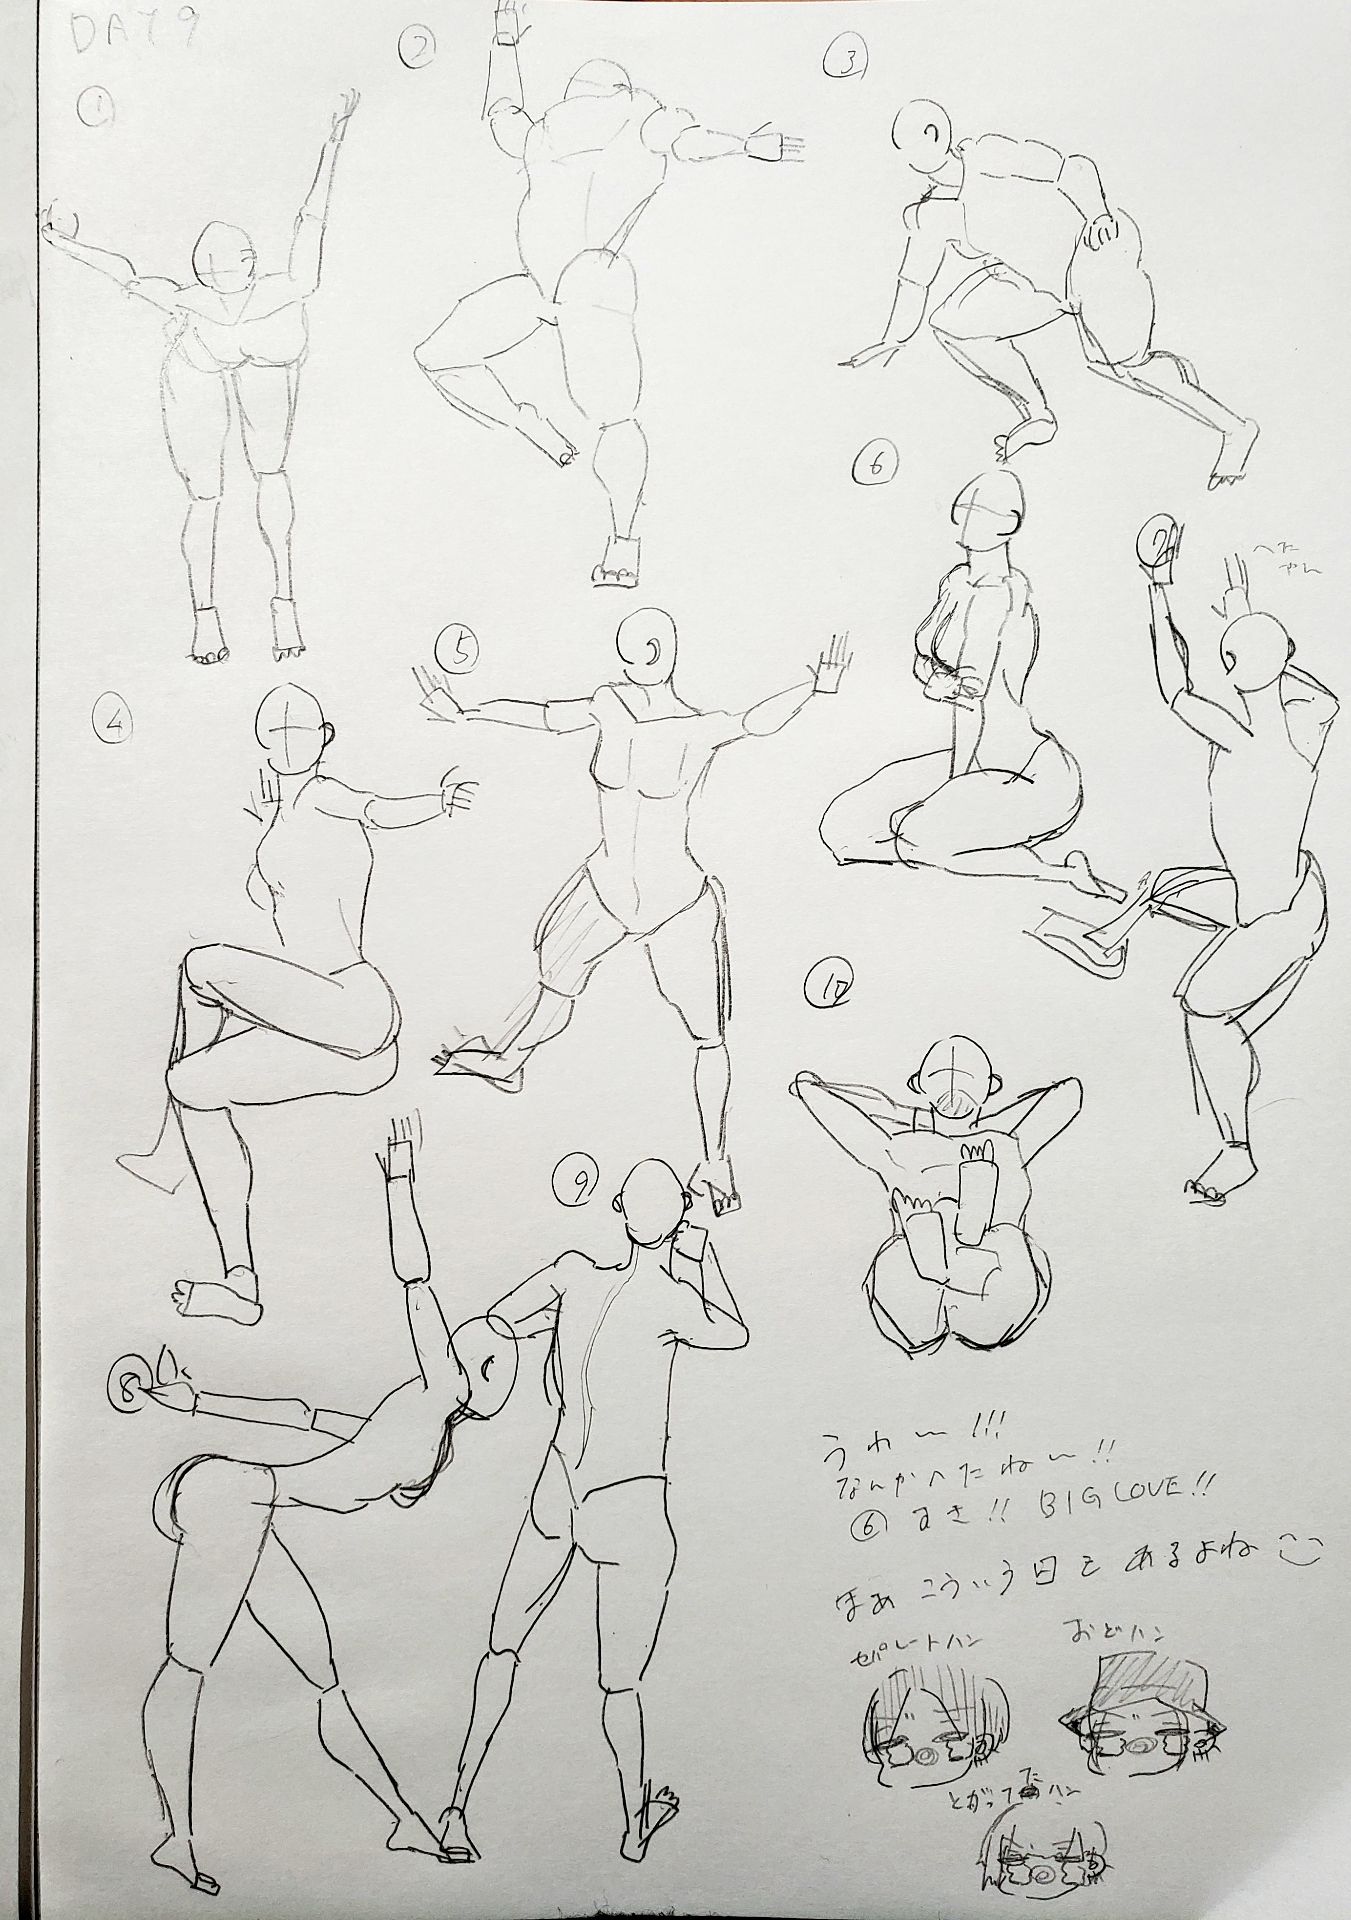 DAY 9
①
②
③
④
⑤
⑥
⑦
へた
やん
⑧
⑨
⑩
うわ〜!!!
なんかへたね〜!!
⑥ すき!! BIG LOVE!!
まあ こういう日も あるよね
セパレートハン
おどハン
とがってたハン